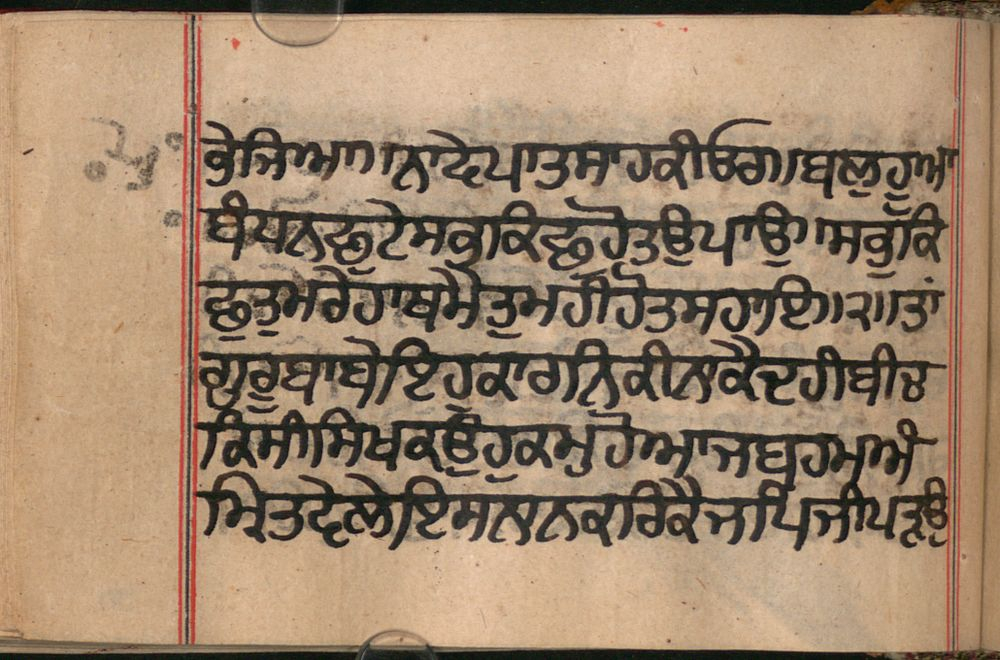 ਭੇਜਿਆ।। ਨਾਦੇਪਾਤਸਾਹਕੀਓਰ।।ਬਲੁਹੂਆ
ਬੰਧਨਛੁਟੇਸਭੁਕਿਛੁਹੋਤਉਪਾਉ।।ਸਭੁਕਿ
ਛੁਤੁਮਰੈਹਾਥਮੈਤੁਮਹੀਹੋਤਸਹਾਇ।।੨।।ਤਾਂ
ਗੁਰੂਬਾਬੇਇਹੁਕਾਰਨਿਕੀਨਕੈਦਹੀਬੀਚ
ਕਿਸੀਸਿਖਕਉਹੁਕਮੁਹੋਆਜਬ੍ਰਹਮਅੰ
ਮ੍ਰਿਤਵੇਲੇਇਸਨਨਕਰਿਕੈਜਪਿਜੀਪੜ੍ਹਉ